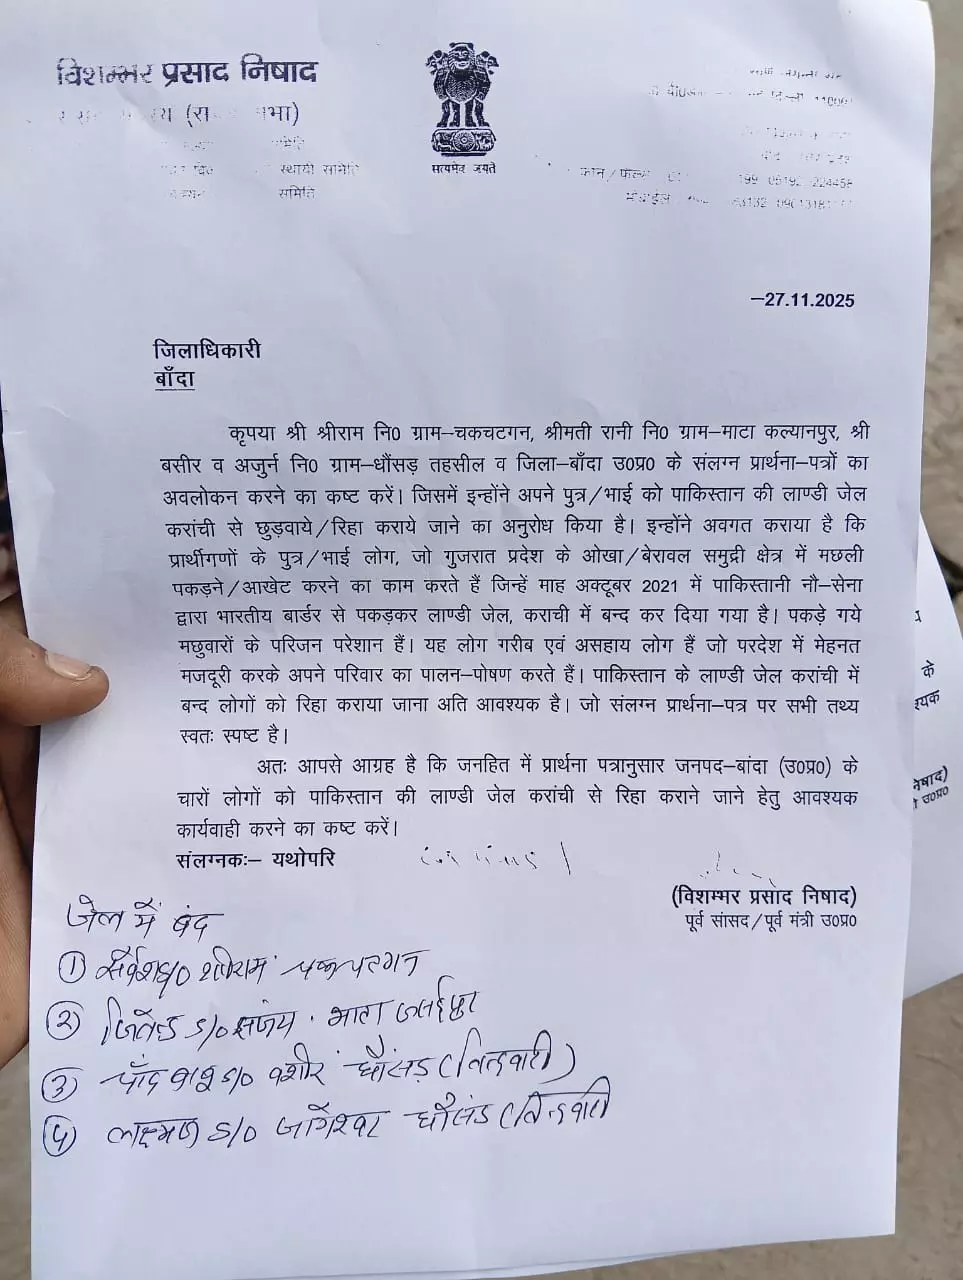 विशम्भर प्रसाद निषाद
सत्यमेव जयते
स्थायी समिति
समिति
–27.11.2025
जिलाधिकारी
बाँदा
कृपया श्री श्रीराम नि0 ग्राम–चकचटगन, श्रीमती रानी नि0 ग्राम–माटा कल्यानपुर, श्री
बसीर व अजुर्न नि0 ग्राम–धौंसड़ तहसील व जिला–बाँदा उ0प्र0 के संलग्न प्रार्थना–पत्रों का
अवलोकन करने का कष्ट करें। जिसमें इन्होंने अपने पुत्र/भाई को पाकिस्तान की लाण्डी जेल
करांची से छुड़वाये/रिहा कराये जाने का अनुरोध किया है। इन्होंने अवगत कराया है कि
प्रार्थीगणों के पुत्र/भाई लोग, जो गुजरात प्रदेश के ओखा/बेरावल समुद्री क्षेत्र में मछली
पकड़ने/आखेट करने का काम करते हैं जिन्हें माह अक्टूबर 2021 में पाकिस्तानी नौ–सेना
द्वारा भारतीय बार्डर से पकड़कर लाण्डी जेल, कराची में बन्द कर दिया गया है। पकड़े गये
मछुवारों के परिजन परेशान हैं। यह लोग गरीब एवं असहाय लोग हैं जो परदेश में मेहनत
मजदूरी करके अपने परिवार का पालन–पोषण करते हैं। पाकिस्तान के लाण्डी जेल करांची में
बन्द लोगों को रिहा कराया जाना अति आवश्यक है। जो संलग्न प्रार्थना–पत्र पर सभी तथ्य
स्वतः स्पष्ट है।
अतः आपसे आग्रह है कि जनहित में प्रार्थना पत्रानुसार जनपद–बांदा (उ0प्र0) के
चारों लोगों को पाकिस्तान की लाण्डी जेल करांची से रिहा कराने जाने हेतु आवश्यक
कार्यवाही करने का कष्ट करें।
संलग्नकः– यथोपरि
(विशम्भर प्रसाद निषाद)
पूर्व सांसद/पूर्व मंत्री उ0प्र0
जेल में बंद
① S/O श्रीराम
② जितेन्द्र S/O संजय. माटा
③ चाँद बाबू S/O बशीर धौंसड़ (तिन्दवारी)
④ लक्ष्मण S/O जागेश्वर धौसंड (तिन्दवारी
के
श्यक
निषाद)
उ0प्र0